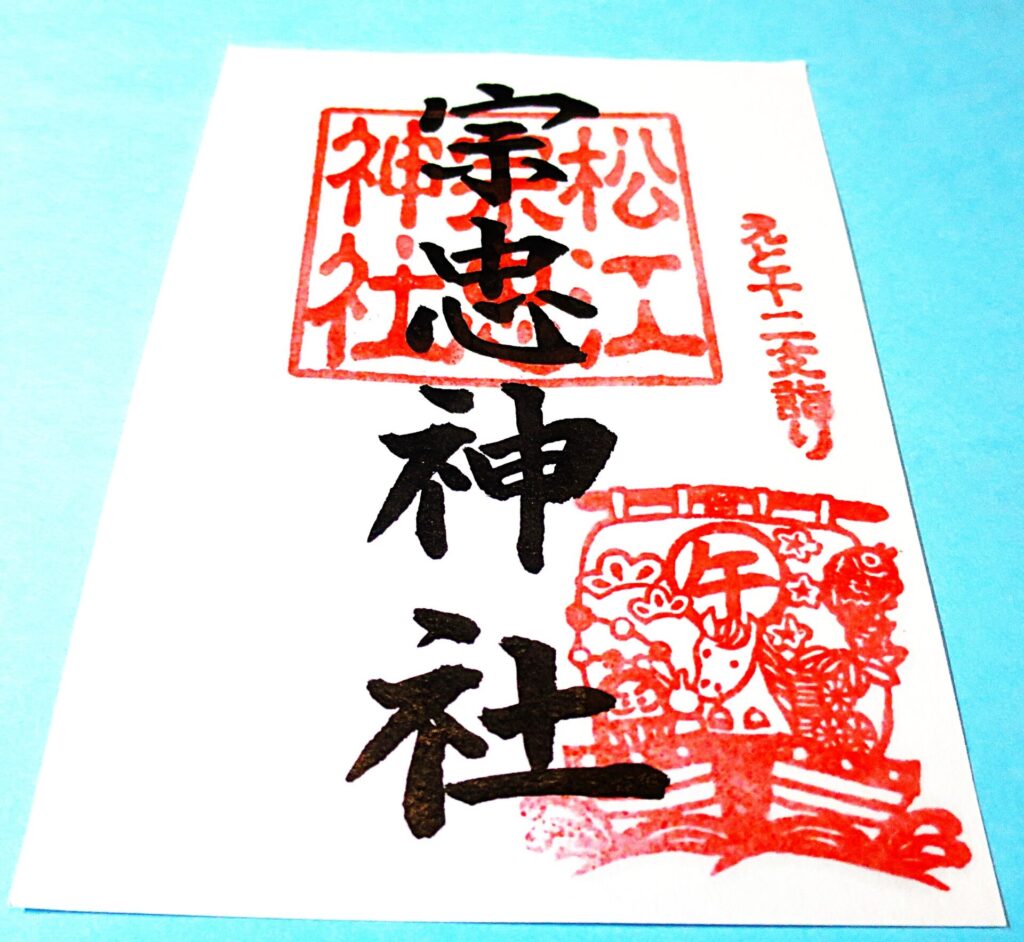 えと十二支詣り
松江
宗忠
神社
宗忠神社
午